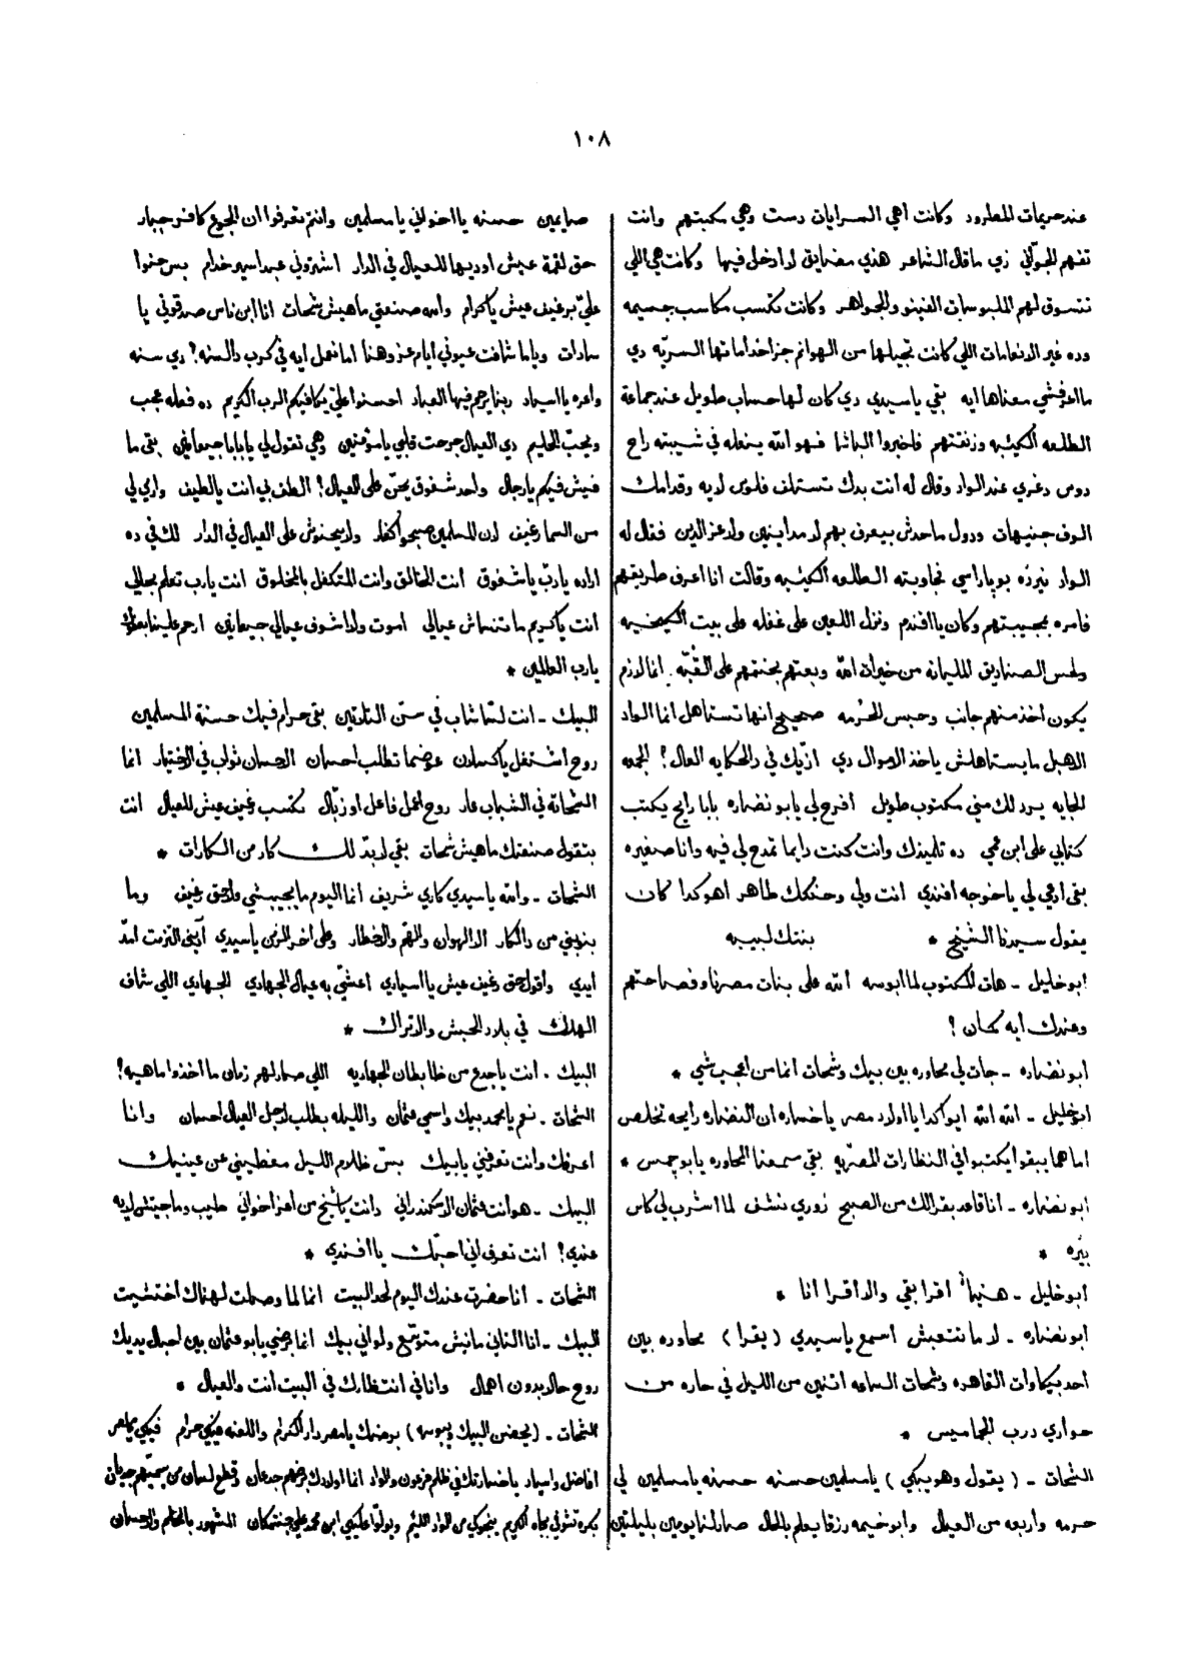 ١٠٨
عند حريمات المطرود وكانت اهي السرايات دست وهي مكبتهم وانت
تفهم الجوّاني زي ما قال الشاعر هذي مضايق لا ادخل فيها وكانت هي اللي
تتسوق لهم الملبوسات الفينو والجواهر وكانت تكسب مكاسب جسيمه
وده غير الانعامات اللي كانت تجيلها من الهوانم جزا خداماتها السريّه دي
ما اعرفشي معناها ايه بقي يا سيدي دي كان لها حساب طويل عند جماعة
الطلعه الكئيبه وزنقتهم فاخبروا الباشا فهو الله ينعله في شيبته راح
دوس دغري عند الواد وقال له انت بدك تستلف فلوس لايه وقدامك
الوف جنيهات ودول ماحدش بيعرف بهم لا مداينين ولا غز الذين فقال له
الواد نيرزه بوپاراسي نجاوبته الطلعه الكئيبه وقالت انا اعرف طريقهم
فامره بجيبتهم وكان يا افندم ونزل اللعين على غفله على بيت الكيخيه
ولحس الصناديق المليانه من خيرات الله وبعتهم بختمهم على القُبّه انما لازم
يكون اخذ منهم جانب وحبس الحُرمه صحيح انها تستاهل انما الواد
الاهبل ما يستاهلش ياخذ الاموال دي ازيّك في دالحكايه العال؟ الجمعه
الجايه يرد لك مني مكتوب طويل افرح لي يابو نضاره بابا رايح يكتب
كتابي على ابن عمي ده تلميذك وانت كنت دايما تمدح لي فيه وانا صغيره
بقى ادعي لي يا خوجه افندي انت ولي وحنكك طاهر اهو كدا كان
يقول سيدنا الشيخ * بنتك لبيبه
ابو خليل ـ هات المكتوب لما ابوسه الله على بنات مصرنا وفصاحتهم
وعندك ايه كمان؟
ابو نضاره ـ جات لي محاوره بين بيك وشحات انما من اعجب شي *
ابو خليل ـ الله الله ايوا كدا يا اولاد مصر يا خساره ان النضاره رايحه تخلص
اما هما يبقوا يكتبوا في النظارات المصريّه بقي سمعنا المحاوره يابو جمس *
ابو نضاره ـ انا قاعد بقرا لك من الصبح زوري نشف لما اشرب لي كاس
بيره *
ابو خليل ـ هنيئاً اقرا بقي والا اقرا انا *
ابو نضاره ـ لا ما تتعبش اسمع يا سيدي (يقرا) محاوره بين
احد بيكاوات القاهره وشحات الساعه اتنين من الليل في حاره من
حواري درب الجماميس *
الشحات ـ (يقول وهو يبكي) يا مسلمين حسنه حسنه يا مسلمين لي
حرمه واربعه من العيال وابو خيمه رزقا يعلم بالحال صار لنا يومين بليلتين
صايمين حسنه يا اخواني يا مسلمين وانتم تعرفوا ان الجوع كافر جبار
حق لقمة عيش اوديها للعيال في الدار اشتروني عبد اسير خدام بس حنوا
عليّ برغيف عيش يا كرام والله صنعتي ما هيش شحات انا ابن ناس صدقوني يا
سادات وياما شافت عيوني ايام عز وهنا اما نعمل ايه في كرب دالسنه؟ دي سنه
واعره يا اسياد ربنا يرحم فيها العباد احسنوا عليّ يكافيكم الرب الكريم ده فعله عجب
ونحب الحليم دي العيال جرحت قلبي يا مؤمنين وهي تقول لي يا بابا جيعانين بقى ما
فيش فيكم يا رجال واحد شفوق يحنّ على العيال! الطف بي انت يا لطيف وارمي لي
من السما رغيف لان المسلمين صبحوا كفار ولا يحنوش على العيال في الدار لك في ده
اراده يا ربّ يا شفوق انت الخالق وانت المتكفل بالمخلوق انت يا رب تعلم بحالي
انت يا كريم ما تنساش عيالي اموت ولا اشوف عيالي جيعانين ارحم علينا بعزتك
يا رب العالمين *
البيك ـ انت لسّا شاب في سنّ التلاتين بقى حرام فيك حسنة المسلمين
روح اشتغل يا كسلان عوضما تطلب احسان الاحسان ثواب في الاختيار انما
الشحاته في الشباب عار روح اعمل فاعل او زبّال تكتسب رغيف عيش للعيال انت
بتقول صنعتك ما هيش شحات بقي لا بدّ لك كار من الكارات *
الشحات ـ والله يا سيدي كاري شريف انما اليوم ما يجيبشي ولا حق رغيف وما
بنوبني من دالكار الا الهوان والهم والاخطار وعلى اخر الزمن يا سيدي آديني التزمت امدّ
ايدي واقول حق رغيف عيش يا اسيادي اعشّي به عيال الجهادي الجهادي اللي شاف
الهلاك في بلاد الحبش والاتراك *
البيك ـ انت يا جدع من ظابطان الجهاديه اللي صار لهم زمان ما اخذوا ماهيه؟
الشحات ـ نعم يا محمد بيك واسمي عثمان والليله بطلب لاجل العيال احسان وانا
اعرفك وانت تعرفني يا بيك بسّ ظلام الليل مغطيني عن عينيك
البيك ـ هو انت عثمان الاسكندراني دانت يا شيخ من اعز اخواني طيب وما جيتش لايه
عندي؟ انت تعرف اني احبّك يا افندي *
الشحات ـ انا حضرت عندك اليوم لحد البيت انما لما وصلت لهناك اختشيت
البيك ـ انا التاني مانيش متوسّع ولو اني بيك انما برضي يابو عثمان بين احبال يديك
روح حالا بدون اهمال وانا في انتظارك في البيت انت والعيال *
الشحات ـ (يحضن البيك ويبوسه) بوضك يا مصر دار الكرام واللعنه فيكي حرام فيكي يا مصر
افاضل واسياد يا خسارتك في ظلم فرعون والواد انما اولادك برضهم جدعان وقطع لسان من يسميهم جربان
بكره تشوفي بجاه الكريم ينجوكي من الواد اللئيم ويولوا عليكي ابن محمد علي جنتمكان الشهور بالحلم والاحسان